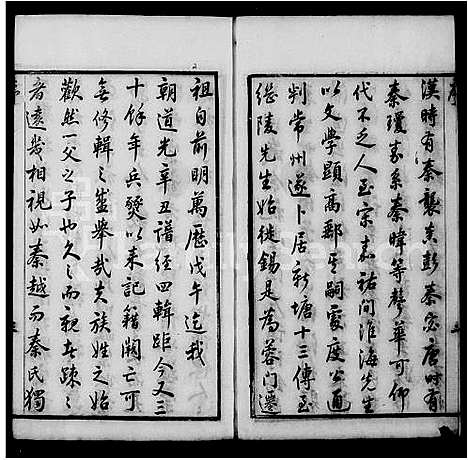 漢時有秦襲秦彭秦宓唐時有
秦瓊秦系秦暐等聲華可仰
代不乏人至宋嘉祐間淮海先生
以文學顯高郵至嗣處度公通
判常州遂卜居新塘十三傳至
從陵先生始徙錫是為蓉門遷
祖自前明萬歷戊午迄我
朝道光辛丑譜經四輯距今又三
十餘年兵燹以來記籍闕亡可
無修輯之盛舉哉夫族姓之始
歡然一父之子也久之而親者疎之
者遠幾相視如秦越而秦氏獨